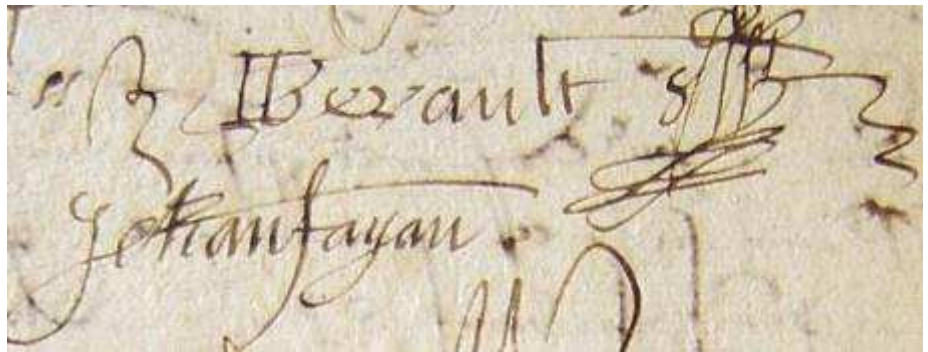 Berault
Jehan fayau